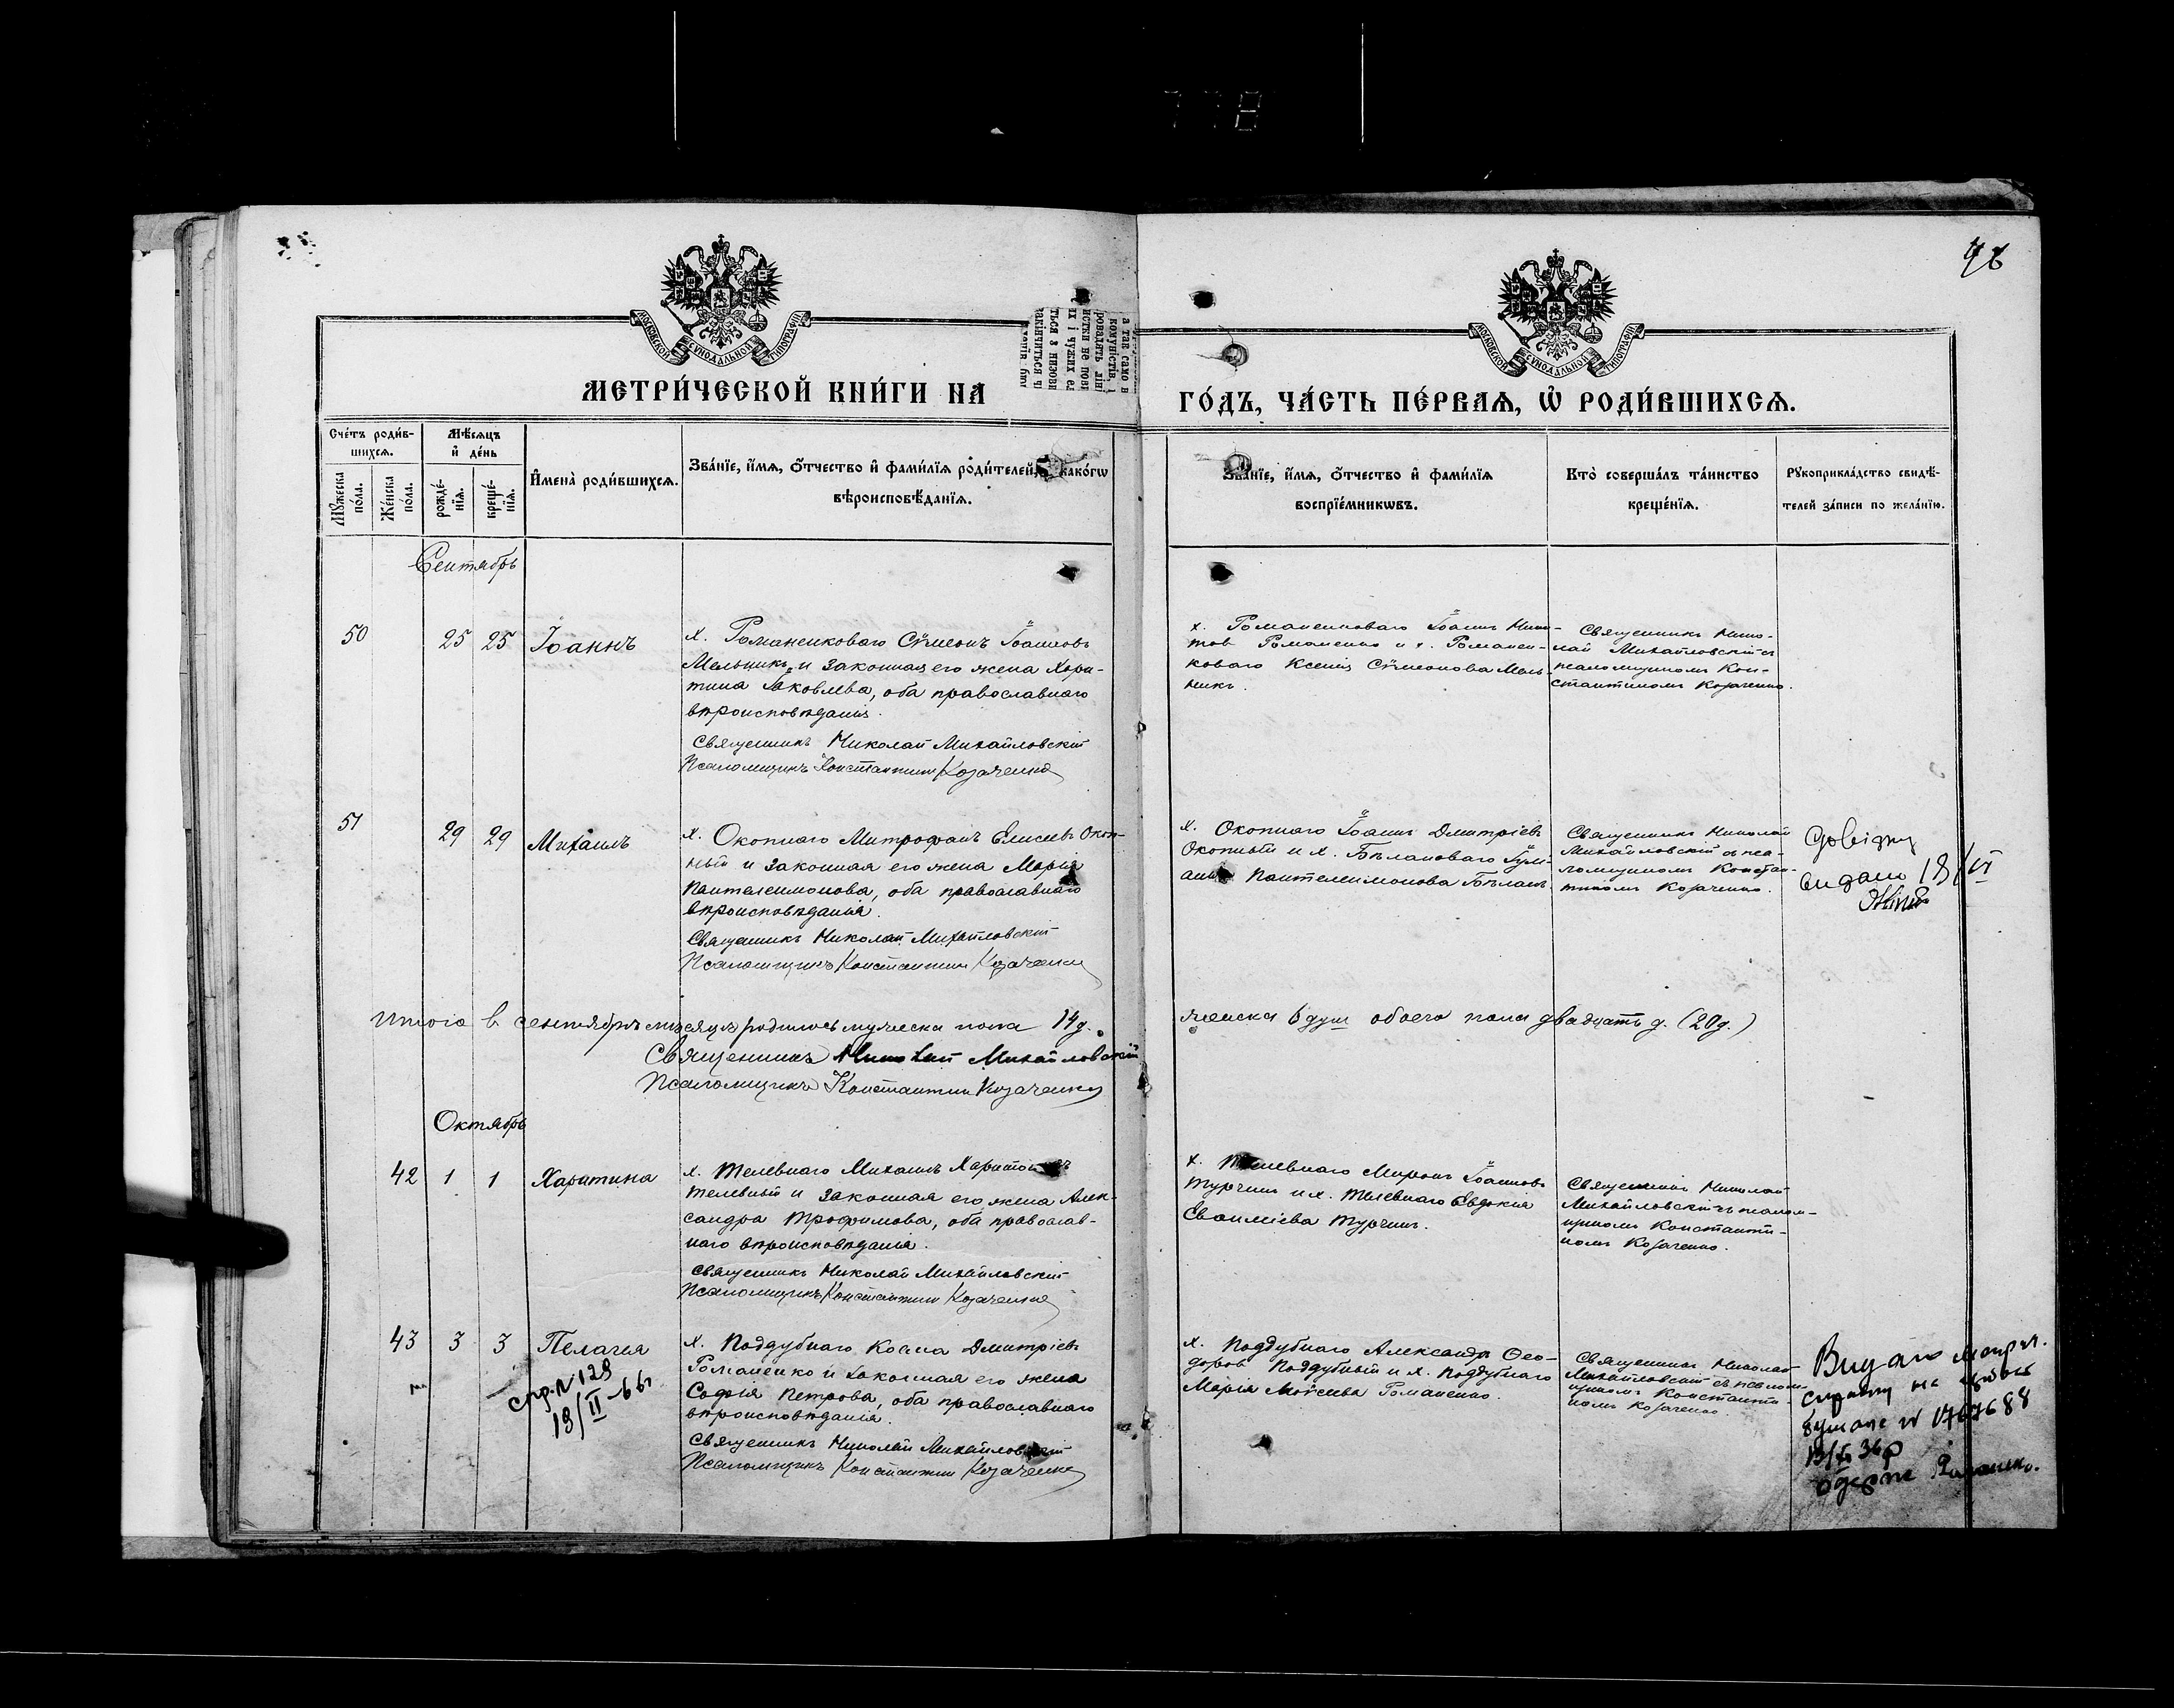 778
46
МОСКОВСКОЙ СѴНОДАЛЬНОЙ ТИПОГРАФІИ
МОСКОВСКОЙ СѴНОДАЛЬНОЙ ТИПОГРАФІИ
МЕТРИ́ЧЕСКОЙ КНИ́ГИ НА
ГО́ДЪ, ЧА́СТЬ ПЕ́РВАѦ, Ѡ҆ РОДИ́ВШИХСѦ.
Сче́тъ роди́в-
шихсѧ.
Мꙋ́жеска по́ла.
Же́нска по́ла.
Мѣ́сѧцъ
и҆ де́нь
рожде́-
нїѧ.
креще́-
нїѧ.
И҆мена̀ роди́вшихсѧ.
Зва́нїе, и҆́мѧ, ѻ҆́тчество и҆ фами́лїѧ роди́телей, како́гѡ
вѣроисповѣ́данїѧ.
Зва́нїе, и҆́мѧ, ѻ҆́тчество и҆ фами́лїѧ
воспрїе́мникѡвъ.
Кто̀ соверша́лъ та́инство
креще́нїѧ.
Рꙋкоприкла́дство свидѣ́-
телей за́писи по жела́нїю.
Сентябрь
50
25 25
Іоаннъ
х. Романенковаго Сѵмеонъ Іоанновъ
Мельникъ и законная его жена Хари-
тина Іаковлева, оба православнаго
вѣроисповѣданія.
Священникъ Николай Михайловскій
Псаломщикъ Константинъ Козаченко
х. Романенковаго Іоаннъ Ники-
товъ Романенко и х. Романен-
коваго Ксенія Сѵмеонова Мель-
никъ.
Священникъ Нико-
лай Михайловскій съ
псаломщикомъ Кон-
стантиномъ Козаченко.
51
29 29
Михаилъ
х. Окопнаго Митрофанъ Елисеевъ Окоп-
ный и законная его жена Марія
Пантелеимонова, оба православнаго
вѣроисповѣданія.
Священникъ Николай Михайловскій
Псаломщикъ Константинъ Козаченко
х. Окопнаго Іоаннъ Дмитріевъ
Окопный и х. Бѣлановаго
Пантелеимонова Бѣланъ
Священникъ Николай
Михайловскій съ пса-
ломщикомъ Констан-
тиномъ Козаченко.
Довідку
видано 18/VI
Итого в сентябрѣ мѣсяцѣ родилось мужеска пола 14 д.
женска 6 душ обоего пола двадцать д. (20 д.)
Священникъ Николай Михайловскій
Псаломщикъ Константинъ Козаченко
Октябрь
42
1 1
Харитина
х. Телевнаго Михаилъ Харитоновъ
Телевный и законная его жена Алек-
сандра Трофимова, оба православ-
наго вѣроисповѣданія.
Священникъ Николай Михайловскій
Псаломщикъ Константинъ Козаченко
х. Телевнаго Миронъ Іоанновъ
Турчинъ и х. Телевнаго Евдокія
Евѳиміева Турчинъ.
Священникъ Николай
Михайловскій съ псалом-
щикомъ Константи-
номъ Козаченко.
43
3 3
Пелагея
спр. N 128
18/II-66г
х. Поддубнаго Косма Дмитріевъ
Романенко и законная его жена
Софія Петрова, оба православнаго
вѣроисповѣданія.
Священникъ Николай Михайловскій
Псаломщикъ Константинъ Козаченко
х. Поддубнаго Александръ Ѳео-
доровъ Поддубный и х. Поддубнаго
Марія Моѵсеева Романенко.
Священникъ Николай
Михайловскій съ псалом-
щикомъ Константи-
номъ Козаченко.
Видано метрич.
справку на
бумаге N 1767688
36р